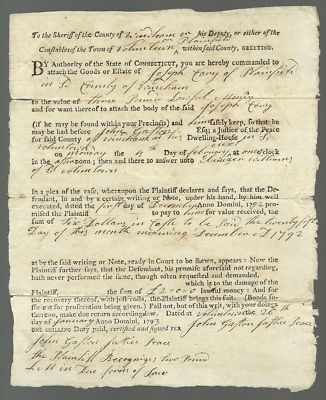 To the Sheriff of the County of Windham or his Deputy, or either of the
Constables of the Town of Voluntown or Plainfield within said County, GREETING.
BY Authority of the State of CONNECTICUT, you are hereby commanded to
attach the Goods or Estate of Joseph Cory of Plainfield
in sd County of Windham
to the value of three Pound Lawful Money
and for want thereof to attach the body of the said Joseph Cory
(if he may be found within your Precincts) and him safely keep, so that he
may be had before John Gaston Esq; a Justice of the Peace
for said County of Windham at his Dwelling-House in sd
Voluntown
on Monday the of February at one o'clock
in the afternoon; then and there to answer unto Ebenezer Williams
of sd Voluntown
In a plea of the case, whereupon the Plaintiff declares and says, that the Defendant,
in and by a certain writing or Note, under his hand, by him well
executed, dated the first day of December Anno Domini, 1792 promised
the Plaintiff to pay to him for value received, the
sum of Six Dollars in to be Paid the twenty fifth
Day of the month December AD 1792
as by the said writing or Note, ready in Court to be shewn, appears: Now the
Plaintiff further says, that the Defendant, his promise aforesaid not regarding,
hath never performed the same, though often requested and demanded,
which is to the damage of the
Plaintiff, the sum of £2 0 0 0 lawful money: And for
the recovery thereof, with just costs, the Plaintiff brings this suit. (Bonds sufficient
for prosecution being given.) Fail not, but of this writ, with your doings
thereon, make due return according to law. Dated at Voluntown 26th
day of January Anno Domini, 1793
ONE SHILLING Duty paid, certified and signed PER John Gaston Justice Peace
John Gaston Justice Peace
the Plaintiff Recognizes two Pound
in Due form of Law